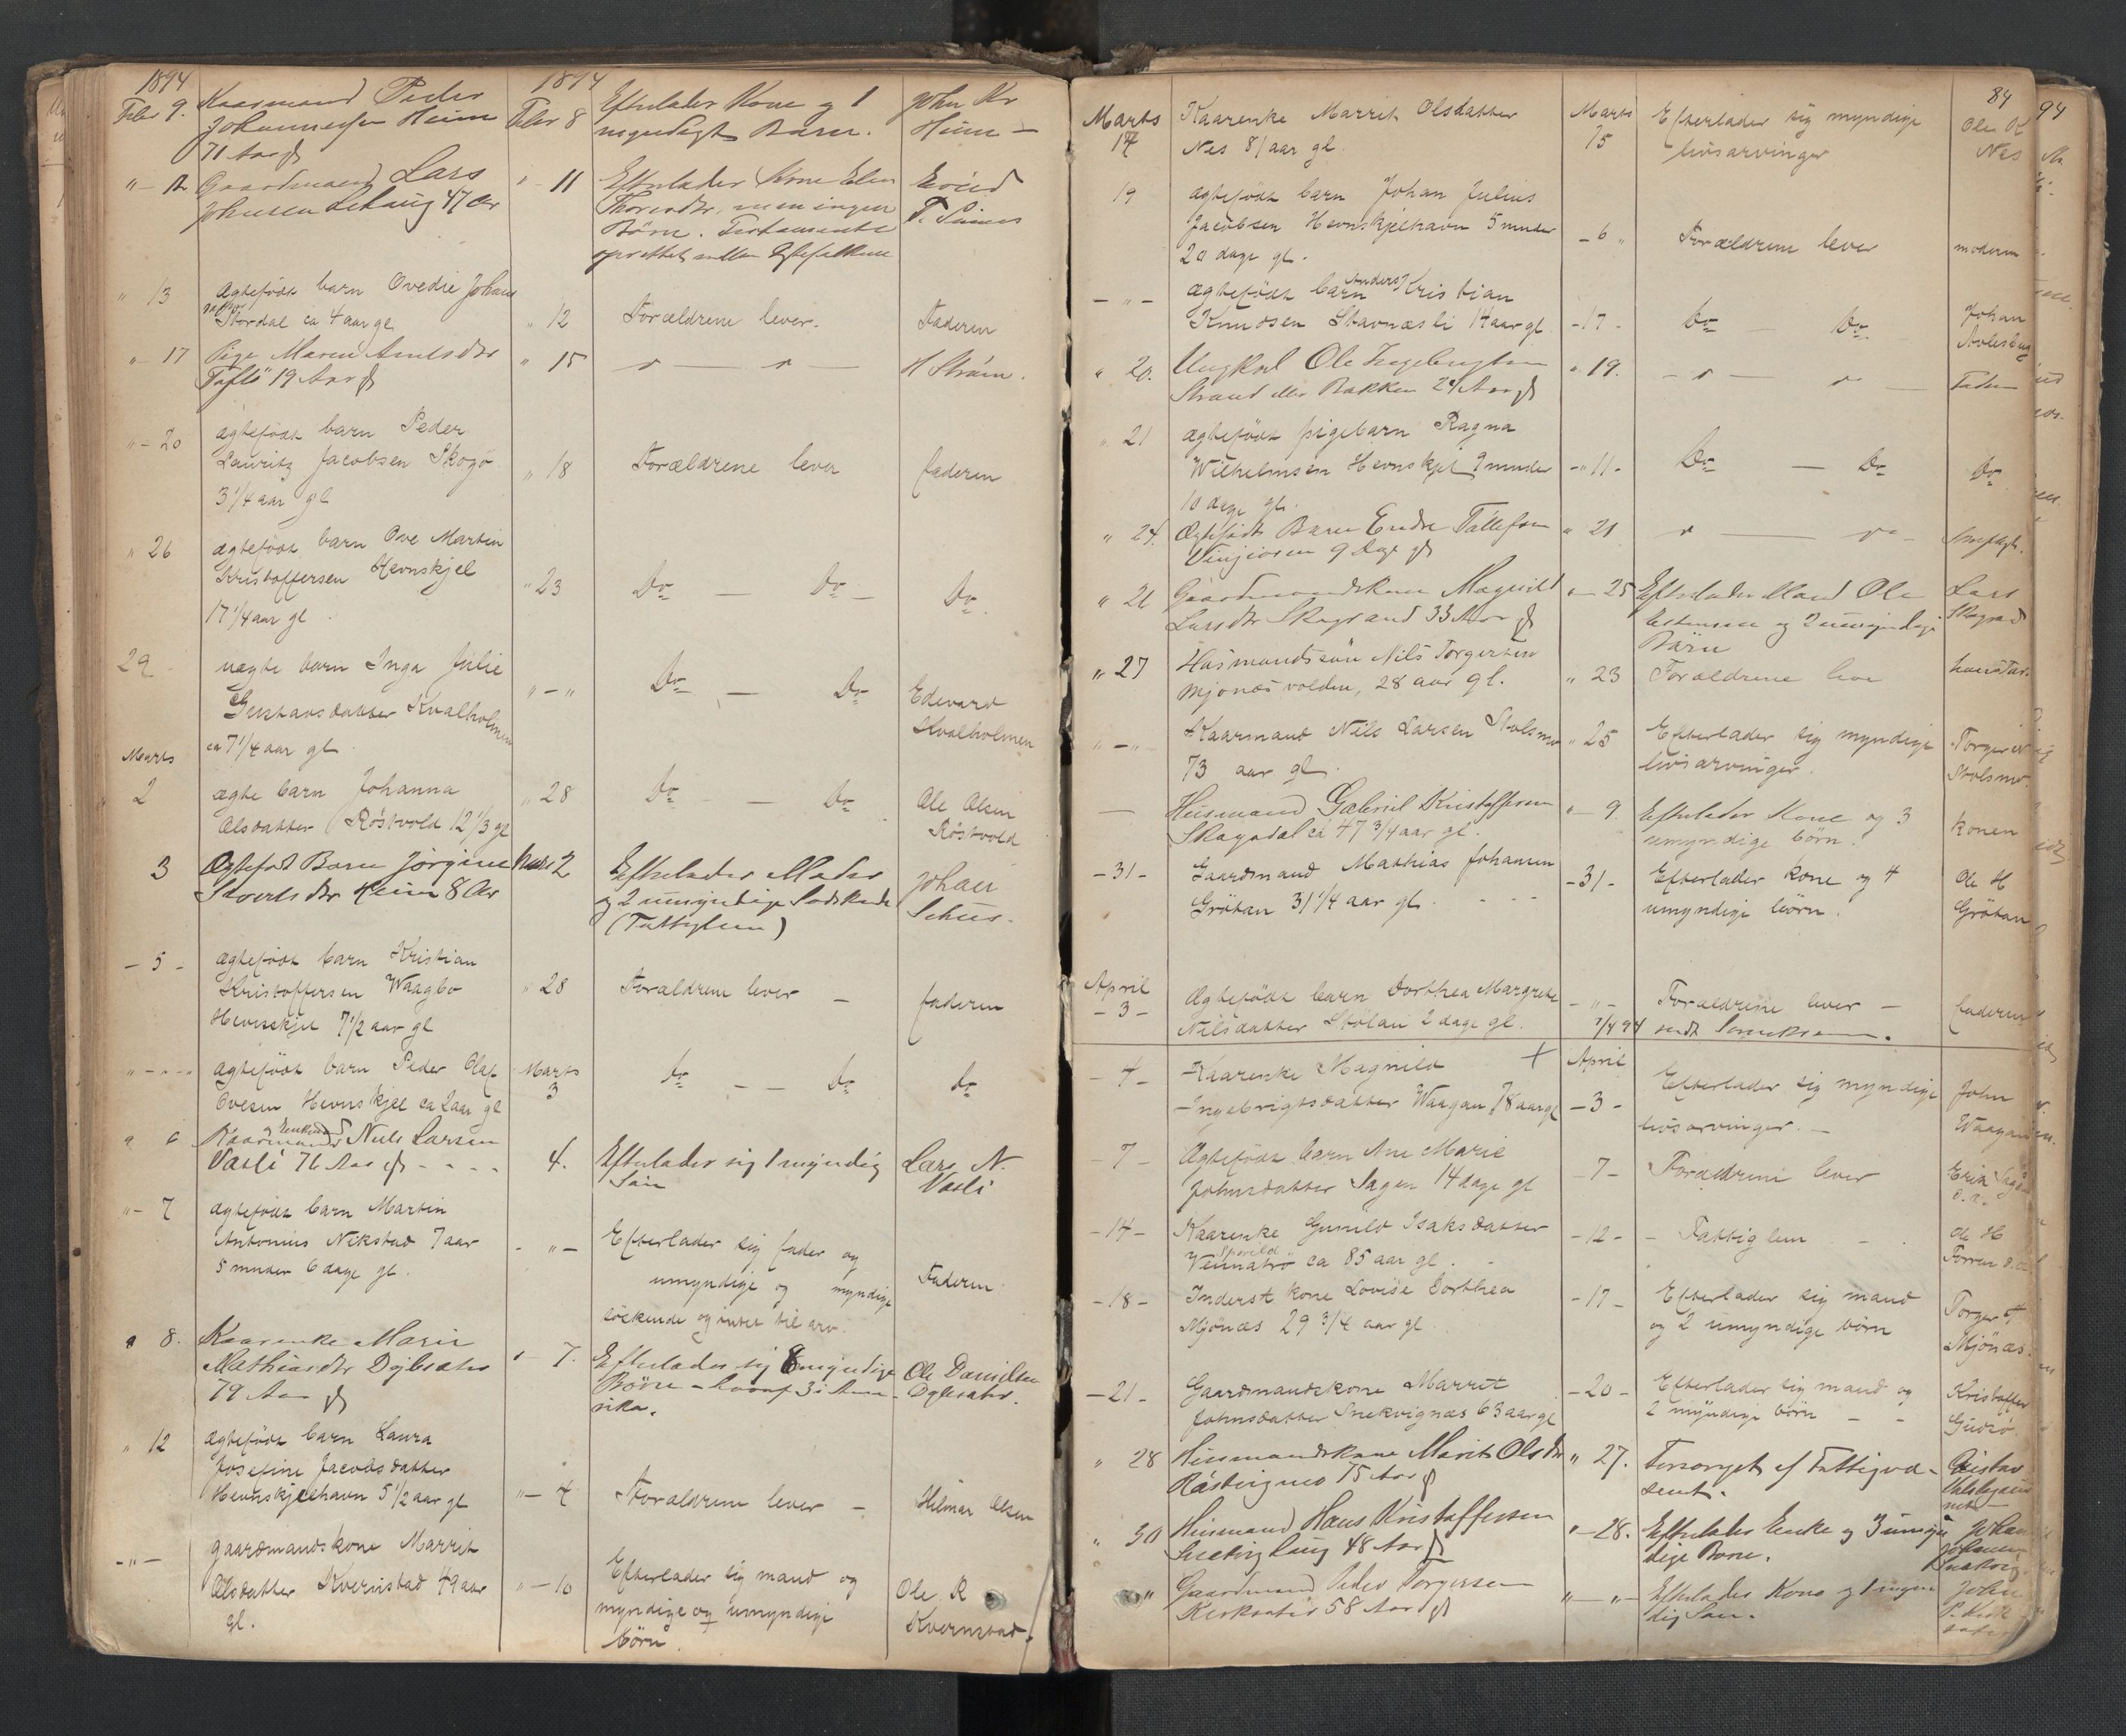 1894
1894
Febr 9. Kaarmand Peder
Johannesen Heim
71 Aar gl
Febr 8
Efterlader Kone og 1
myndigt Barn.
John
Heim
" - 12 Gaardmand Lars
Johnsen 47 Aar
" - 11
Efterlader Kone Elen
men ingen
Børn. Testamente
oprettet mellem Ægtefolkene
" 13 ægtefødt barn Ovedie Johans
Stordal ca 4 aar gl
" 12
Forældrene lever.
Faderen
" - 17 Pige Maren
19 Aar gl
" 15
H Strøm.
" - 20 ægtefødt barn Peder
Lauritz Jacobsen Skogø
3 1/4 aar gl
" 18
Forældrene lever
faderen
" 26 ægtefødt barn Ove Martin
Kristoffersen Hevnskjel
17 1/4 aar gl
" 23
Do — Do —
Do
29 uægte barn Inga Julie
Gustavsdatter Kvalholmen
ca 7 1/4 aar gl
" - "
Do — Do
Edevard
Kvalholmen
Marts
2 ægte barn Johanna
Olsdatter Röstvold 12 1/3 gl
" 28
Do — Do
Ole Olsen
Röstvold
3 Ægtefødt Barn Jørgine
Heim 8 Aar
Marts 2
Efterlader Moder
og 2 umyndige Sødskende
(Fattiglem)
Johan
- 5 - ægtefødt barn Kristian
Kristoffersen Waagbø
Hevnskjel 7 1/2 aar gl
" 28
Forældrene lever —
faderen
" - - " ægtefødt barn Peder Olaf
Ovesen Hevnskjel ca 2 aar gl
Marts
3
Do - - Do
do
Kaarmand Nils Larsen
Vasli 76 Aar gl - - - -
4.
Efterlader sig 1 myndig
Søn
Lars N.
Vasli
" - 7 ægtefødt barn Martin
Antonius Nekstad 7 aar
5 mnder 6 dage gl.
- " -
Efterlader sig fader og
umyndige og myndige
söskende og intet til arv.
Faderen
" 8. Kaarenke Marie
Mathiasdtr
79 Aar gl
" - 7.
Efterlader sig 6 myndige
Børn - hvoraf 3 i Ame-
rika.
Ole Danielsen
" 12 ægtefødt barn Laura
Josefine Jacobsdatter
Hevnskjelhavn 5 1/2 aar gl
" - 4
Forældrene lever —
Hilmar Olsen
- " - gaardmandskone Marrit
Olsdatter Kvernstad 49 aar
gl.
" - 10
Efterlader sig mand og
myndige og umyndige
börn.
Ole R
Kvernstad.
84
94
Marts
14 Kaarenke Marrit Olsdatter
Nes 81 aar gl.
Marts
15
Efterlader sig myndige
livsarvinger
Ole K
Nes
19 ægtefødt barn Johan Julius
Jacobsen Hevnskjelhavn 5 mnder
20 dage gl.
- 6 "
Forældrene lever
moderen
- " - ægtefødt barn Anders Kristian
Knudsen Stavnæsli 14 aar gl.
- 17 -
Do — Do
Johan
" 20. Ungkarl Ole Ingebrigtsen
Strand eller Bakken 24 Aar gl
" 19.
Faderen
" 21 ægtefødt pigebarn Ragna
Wilhelmsen Hevnskjel 9 mnder
10 dage gl.
- " 11 -
Do — Do
Do
" 24. Ægtefødt Barn Endre
Vinjeøren 9 Dage gl
" 21
" 26 Gaardmandskone Magnild
Larsdtr 33 Aar gl
" - 25
Efterlader Mand Ole
og 2 umyndige
Børn
Lars
" 27 Husmandssøn Nils Torgersen
Mjönesvolden, 28 aar gl.
" 23
Forældrene leve
" - " Kaarmand Nils Larsen Stolsmo
73 aar gl.
" 25
Efterlader sig myndige
livsarvinger.
Torger N
Stolsmo.
— Husmand Gabriel Kristoffersen
Skagedal ca 47 3/4 aar gl.
" - 9.
Efterlader Kone og 3
umyndige börn.
konen
- 31 - Gaardmand Mathias Johansen
Grötan 31 1/4 aar gl. - - -
- 31 -
Efterlader kone og 4
umyndige börn.
Ole H
Grötan
April
- 3 - Ægtefødt barn Dorthea Margrete
Nilsdatter Stölan 2 dage gl.
- " -
7/4 94
Forældrene lever —
faderen
- 4 - Kaarenke Magnild +
Ingebrigtsdatter Waagan 78 aar gl
April
- 3 -
Efterlader sig myndige
livsarvinger. —
John
Waagan
- 7 - Ægtefødt barn Ane Marie
Johnsdatter Sagen 14 dage gl
- 7 -
Forældrene lever
Erik
- 14 - Kaarenke Gunild Isaksdatter
ca 85 aar gl.
- 12 -
- Fattiglem -
Ole H
- 18 - Inderst kone Lovise Dorthea
Mjönæs 29 3/4 aar gl.
- 17 -
Efterlader sig mand
og 2 umyndige börn
Torger
Mjönæs
- 21 - Gaardmandskone Marrit
Johnsdatter Snekvignæs 63 aar gl
- 20 -
Efterlader sig mand og
2 myndige börn - -
Kristoffer
" 28 Husmandskone Marit Olsdtr
75 Aar gl
" 27.
Forsørget af Fattigvæ-
senet.
" 30 Husmand Hans Kristoffersen
48 Aar gl
" - 28.
Efterlader Enke og 3 umyn
dige Børn.
Johan
" Gaardmand Peder Torgersen
58 Aar gl
" - " -
Efterlader Kone og 1 myn
dig Søn.
John